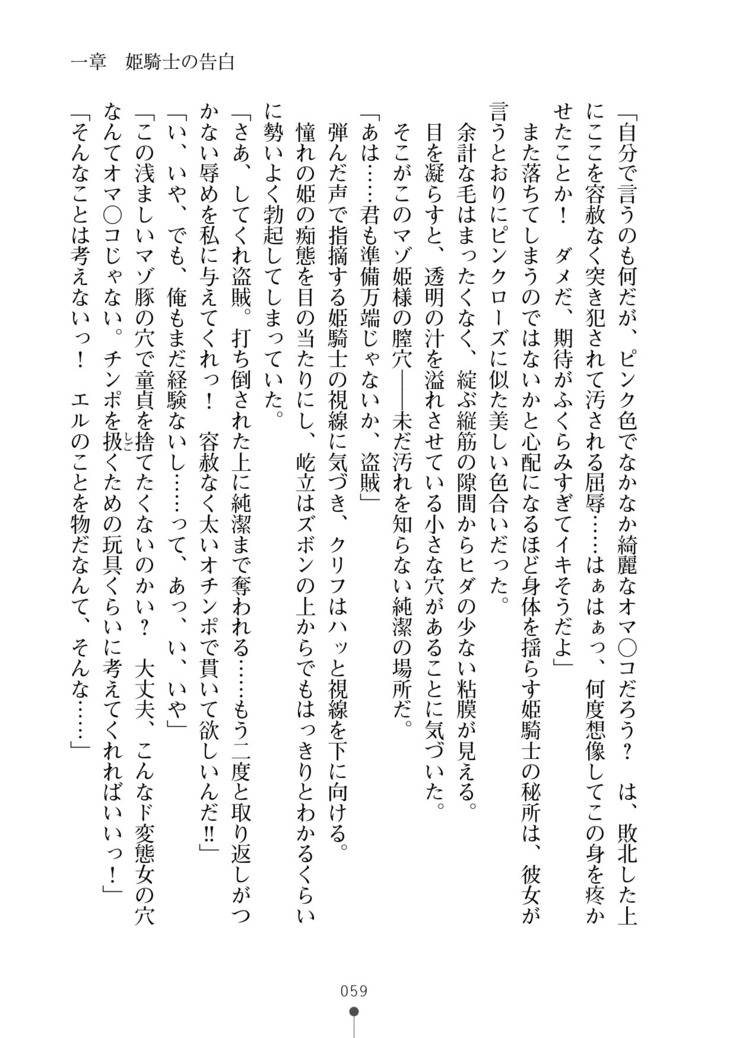 一章　姫騎士の告白
「自分で言うのも何だが、ピンク色でなかなか綺麗なオマ〇コだろう？　は、敗北した上
にここを容赦なく突き犯されて汚される屈辱……はぁはぁっ、何度想像してこの身を疼か
せたことか！　ダメだ、期待がふくらみすぎてイキそうだよ」
また落ちてしまうのではないかと心配になるほど身体を揺らす姫騎士の秘所は、彼女が
言うとおりにピンクローズに似た美しい色合いだった。
余計な毛はまったくなく、綻ぶ縦筋の隙間からヒダの少ない粘膜が見える。
目を凝らすと、透明の汁を溢れさせている小さな穴があることに気づいた。
そこがこのマゾ姫様の膣穴――未だ汚れを知らない純潔の場所だ。
「あは……君も準備万端じゃないか、盗賊」
弾んだ声で指摘する姫騎士の視線に気づき、クリフはハッと視線を下に向ける。
憧れの姫の痴態を目の当たりにし、屹立はズボンの上からでもはっきりとわかるくらい
に勢いよく勃起してしまっていた。
「さあ、してくれ盗賊。打ち倒された上に純潔まで奪われる……もう二度と取り返しがつ
かない辱めを私に与えてくれっ！　容赦なく太いオチンポで貫いて欲しいんだ‼」
「い、いや、でも、俺もまだ経験ないし……って、あっ、い、いや」
「この浅ましいマゾ豚の穴で童貞を捨てたくないのかい？　大丈夫、こんなド変態女の穴
なんてオマ〇コじゃない。チンポを扱くための玩具くらいに考えてくれればいいっ！」
「そんなことは考えないっ！　エルのことを物だなんて、そんな……」
しご
059